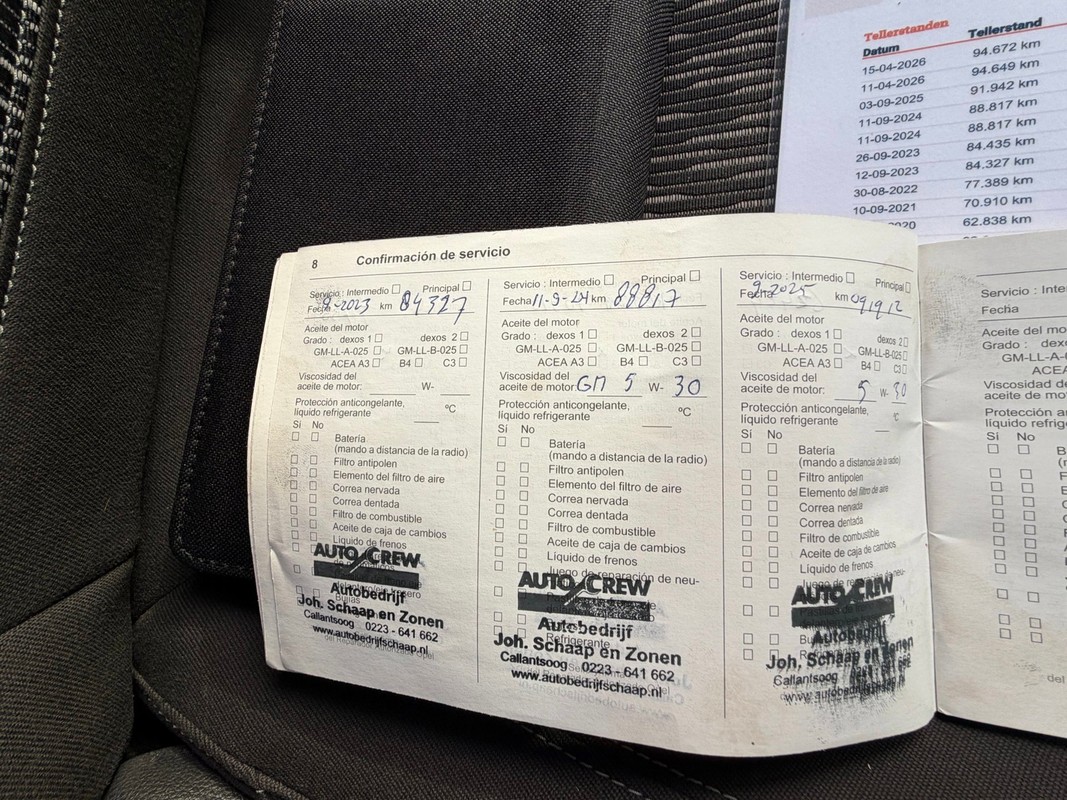 Tellerstanden
Datum Tellerstand
15-04-2026 94.672 km
11-04-2026 94.649 km
03-09-2025 91.942 km
11-09-2024 88.817 km
11-09-2024 88.817 km
26-09-2023 84.435 km
12-09-2023 84.327 km
30-08-2022 77.389 km
10-09-2021 70.910 km
2020 62.838 km
8 Confirmación de servicio
Servicio : Intermedio ☐ Principal ☐
Fecha 9-2023 km 84327
Aceite del motor
Grado : dexos 1 ☐ dexos 2 ☐
GM-LL-A-025 ☐ GM-LL-B-025 ☐
ACEA A3 ☐ B4 ☐ C3 ☐
Viscosidad del
aceite de motor: W-
Protección anticongelante,
líquido refrigerante ºC
Sí No
☐ ☐ Batería
(mando a distancia de la radio)
☐ ☐ Filtro antipolen
☐ ☐ Elemento del filtro de aire
☐ ☐ Correa nervada
☐ ☐ Correa dentada
☐ ☐ Filtro de combustible
☐ ☐ Aceite de caja de cambios
☐ ☐ Líquido de frenos
AUTO CREW
Autobedrijf
Joh. Schaap en Zonen
Callantsoog 0223 - 641 662
www.autobedrijfschaap.nl
Servicio : Intermedio ☐ Principal ☐
Fecha 11-9-24 km 88817
Aceite del motor
Grado : dexos 1 ☐ dexos 2 ☐
GM-LL-A-025 ☐ GM-LL-B-025 ☐
ACEA A3 ☐ B4 ☐ C3 ☐
Viscosidad del
aceite de motor: GM 5 W- 30
Protección anticongelante,
líquido refrigerante ºC
Sí No
☐ ☐ Batería
(mando a distancia de la radio)
☐ ☐ Filtro antipolen
☐ ☐ Elemento del filtro de aire
☐ ☐ Correa nervada
☐ ☐ Correa dentada
☐ ☐ Filtro de combustible
☐ ☐ Aceite de caja de cambios
☐ ☐ Líquido de frenos
☐ ☐ Juego de reparación de neu-
AUTO CREW
Autobedrijf
Joh. Schaap en Zonen
Refrigerante
Callantsoog 0223 - 641 662
www.autobedrijfschaap.nl
Servicio : Intermedio ☐ Principal ☐
Fecha 9-2025 km
Aceite del motor
Grado : dexos 1 ☐ dexos 2 ☐
GM-LL-A-025 ☐ GM-LL-B-025 ☐
ACEA A3 ☐ B4 ☐ C3 ☐
Viscosidad del
aceite de motor: 5 W- 30
Protección anticongelante,
líquido refrigerante ºC
Sí No
☐ ☐ Batería
(mando a distancia de la radio)
☐ ☐ Filtro antipolen
☐ ☐ Elemento del filtro de aire
☐ ☐ Correa nervada
☐ ☐ Correa dentada
☐ ☐ Filtro de combustible
☐ ☐ Aceite de caja de cambios
☐ ☐ Líquido de frenos
☐ ☐ Juego de reparación de neu-
AUTO CREW
Autobedrijf
Joh. Schaap en Zonen
Callantsoog
www.autobedrijfschaap.nl
Servicio : Inter
Fecha
Aceite del mo
Grado : dexo
GM-LL-A
ACEA
Viscosidad de
aceite de moto
Protección a
líquido refrig
Sí No